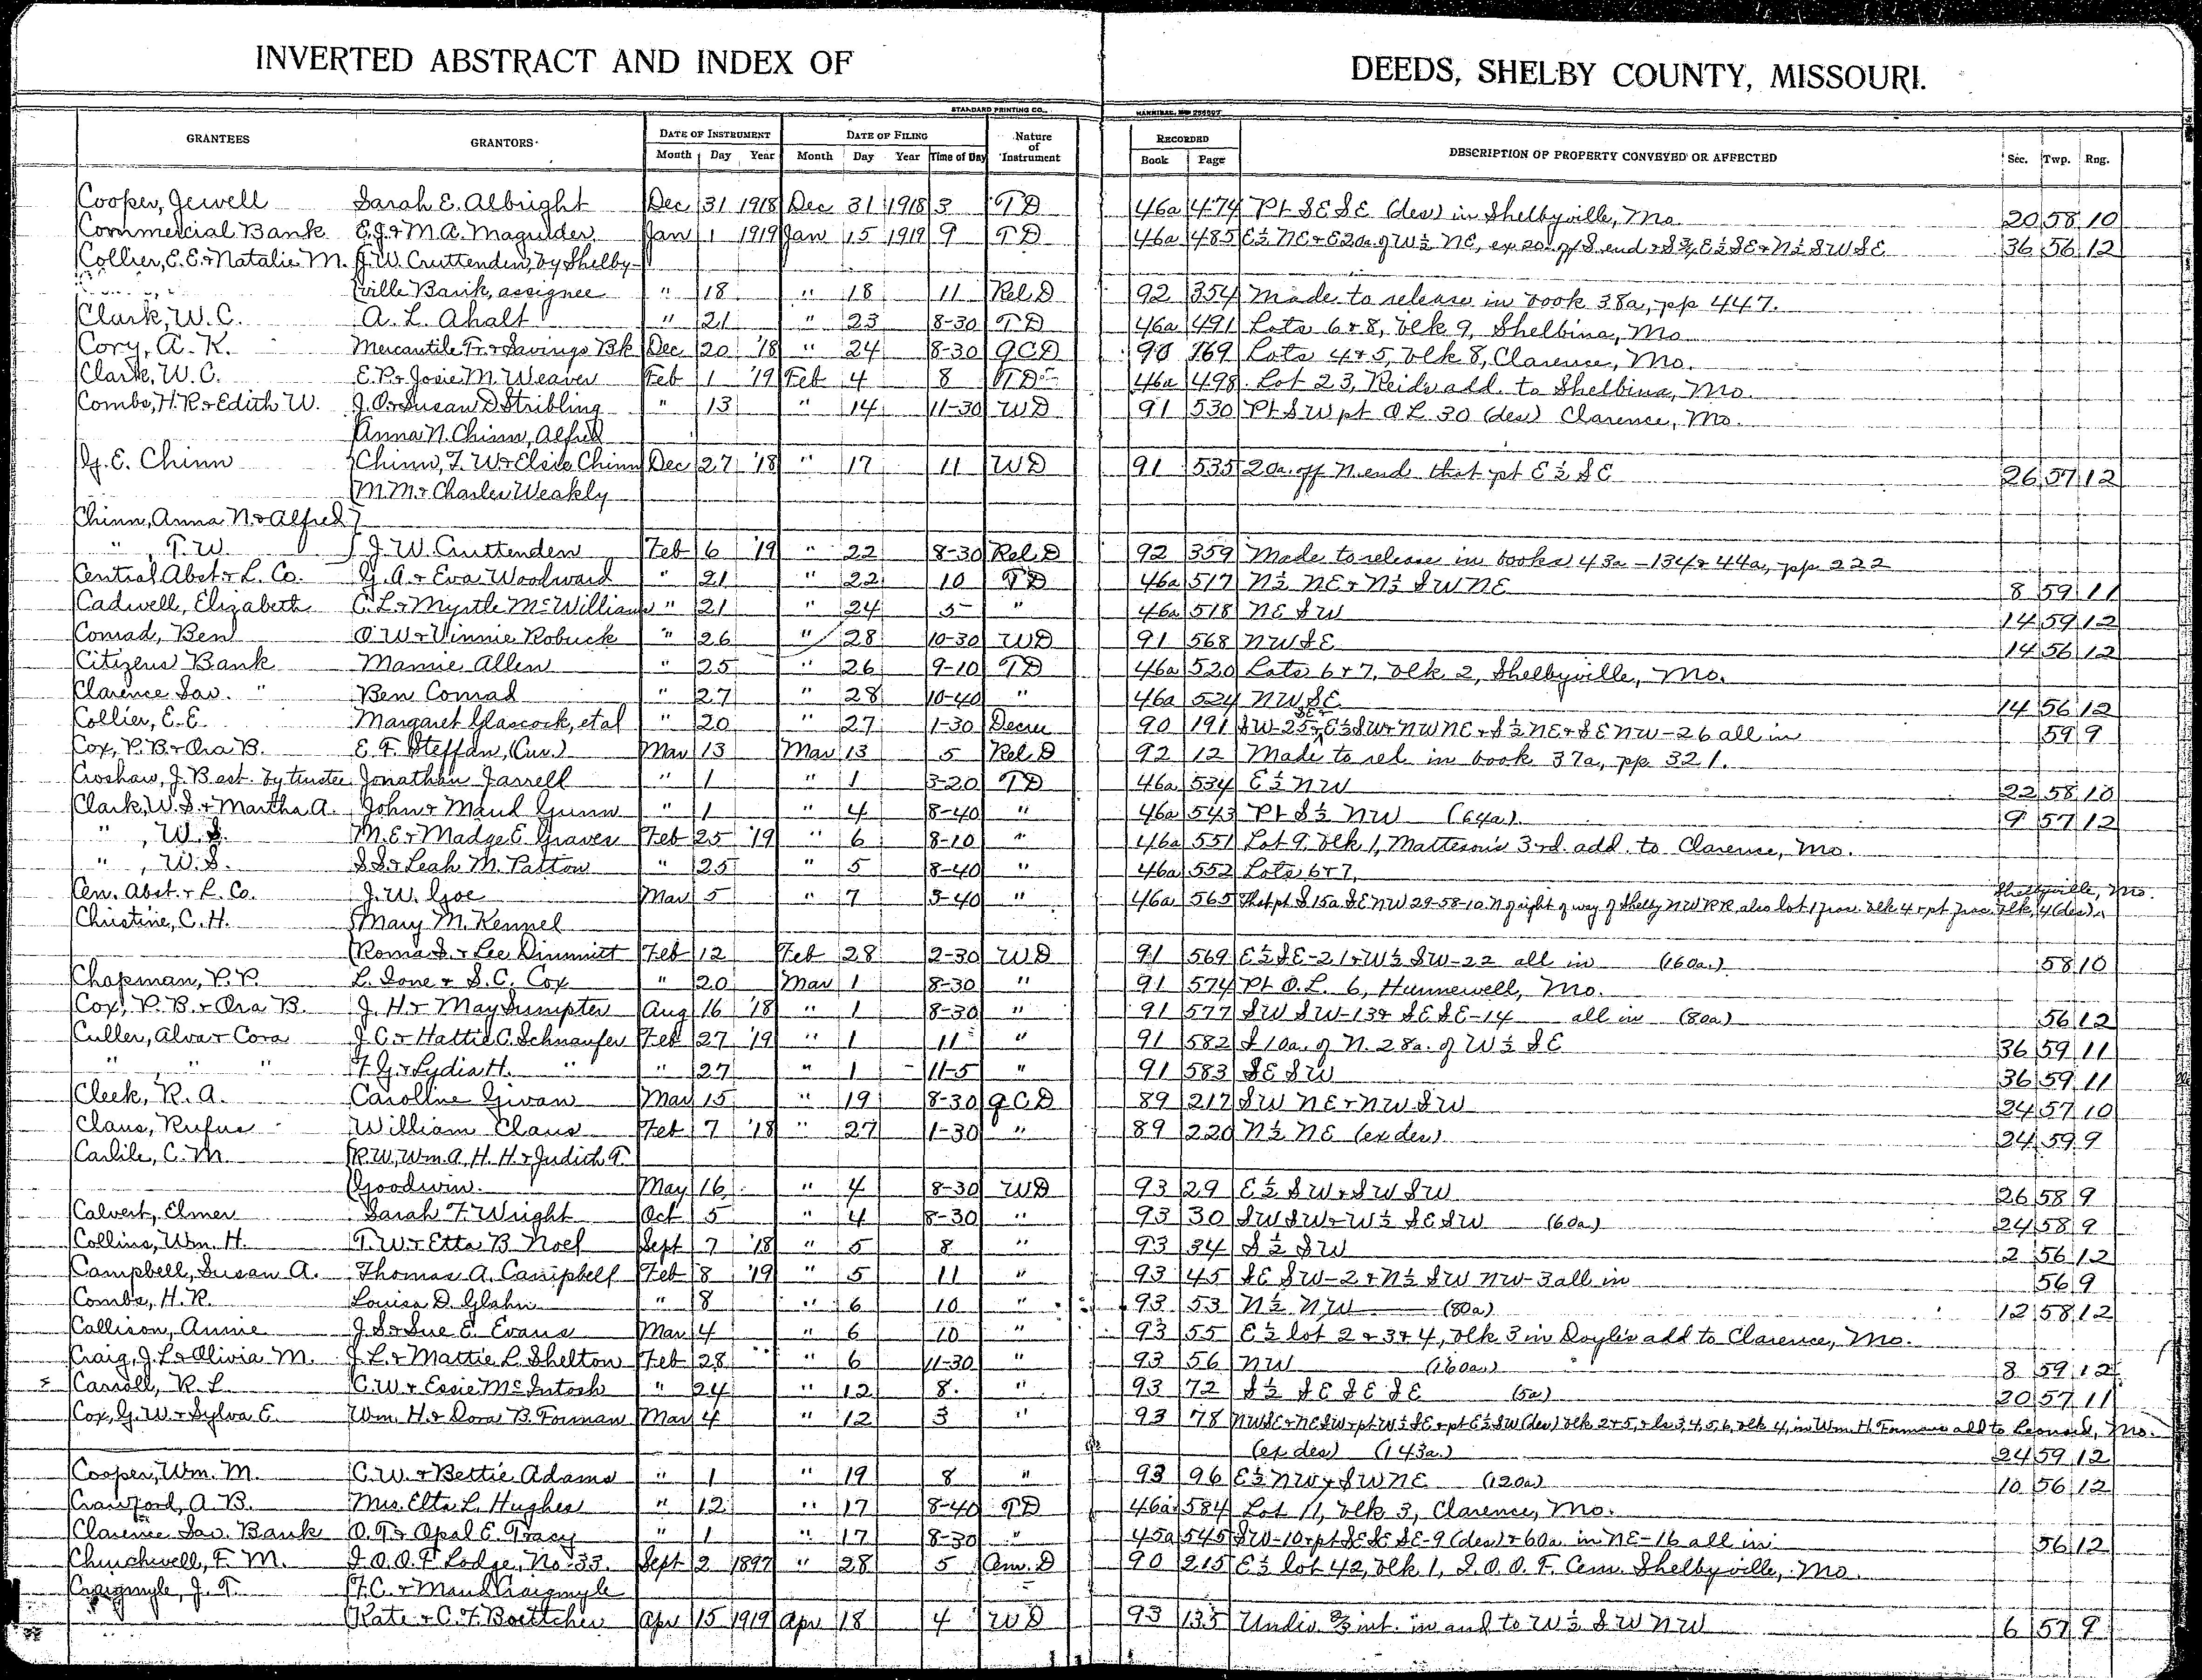 INVERTED ABSTRACT AND INDEX OF DEEDS, SHELBY COUNTY, MISSOURI.
STANDARD PRINTING CO., HANNIBAL, MO
GRANTEES GRANTORS DATE OF INSTRUMENT DATE OF FILING Nature of Instrument RECORDED DESCRIPTION OF PROPERTY CONVEYED OR AFFECTED Sec. Twp. Rng.
Month Day Year Month Day Year Time of Day Book Page
Cooper, Jewell Sarah E. Albright Dec 31 1918 Dec 31 1918 3 TD 46a 474 Pt SE SE (des) in Shelbyville, Mo. 20 58 10
Commercial Bank E.J. & M.A. Magruder Jan 1 1919 Jan 15 1919 9 TD 46a 485 E½ NE & E20a of W½ NE, ex 20a off S. end & S¾ E½ SE & N½ SW SE 36 56 12
Collier, E.E. & Natalie M. J.W. Cruttenden, by Shelby-
ville Bank, assignee " 18 " 18 11 Rel D 92 354 Made to release in book 38a, pp 447.
Clark, W.C. A. L. Ahalt " 21 " 23 8-30 TD 46a 491 Lots 6 & 8, blk 9, Shelbina, Mo
Cory, A. K. Mercantile Tr. & Savings Bk Dec 20 '18 " 24 8-30 QCD 90 169 Lots 4 & 5, blk 8, Clarence, Mo.
Clark, W.C. E.P. & Josie M. Weaver Feb 1 '19 Feb 4 8 TD 46a 498 Lot 23, Reids add. to Shelbina, Mo.
Combs, H.R. & Edith W. J.O. & Susan D Stribling " 13 " 14 11-30 WD 91 530 Pt SW pt OL 30 (des) Clarence, Mo.
Anna N. Chinn, Alfred
G. E. Chinn Chinn, T. W & Elsie Chinn Dec 27 '18 " 17 11 WD 91 535 20a. off N. end that pt E½ SE 26 57 12
M.M. & Charles Weakly
Chinn, Anna N. & Alfred
" , T. W. J. W. Cruttenden Feb 6 '19 " 22 8-30 Rel D 92 359 Made to release in books 43a-134 & 44a, pp 222
Central Abst & L. Co. G. A. & Eva Woodward " 21 " 22 10 TD 46a 517 N½ NE & N½ SW NE 8 59 11
Cadwell, Elizabeth C. L. & Myrtle McWilliams " 21 " 24 5 " 46a 518 NE SW 14 59 12
Conrad, Ben O W & Vinnie Robuck " 26 " 28 10-30 WD 91 568 NW SE 14 56 12
Citizens Bank Mamie Allen " 25 " 26 9-10 TD 46a 520 Lots 6 & 7, blk 2, Shelbyville, Mo.
Clarence Sav. " Ben Conrad " 27 " 28 10-40 " 46a 524 NW SE 14 56 12
Collier, E.E. Margaret Glascock, et al " 20 " 27 1-30 Decree 90 191 SW-25 & SE & E½ SW & NW NE & S½ NE & SE NW-26 all in 59 9
Cox, P.B. & Ora B. E. F. Steffan, (Cur.) Mar 13 Mar 13 5 Rel D 92 12 Made to rel in book 37a, pp 321.
Croshaw, J.B est. by trustee Jonathan Jarrell " 1 " 1 3-20 TD 46a 534 E½ NW 22 58 10
Clark, W. S. & Martha A. John & Maud Gunn " 1 " 4 8-40 " 46a 543 Pt S½ NW (64a) 9 57 12
" , W. S. M. E. & Madge E. Graves Feb 25 '19 " 6 8-10 " 46a 551 Lot 9, blk 1, Matteson's 3rd. add. to Clarence, Mo.
" , W. S. S.S. & Leah M. Patton " 25 " 5 8-40 " 46a 552 Lots 6 & 7,
Cen. Abst. & L. Co. J. W. Goe Mar 5 " 7 3-40 " 46a 565 That pt S 15a SE NW 29-58-10 N of right of way of Shelby NW RR, also lot 1 frac. blk 4 & pt frac. blk. 4 (des) Shelbyville, Mo.
Christine, C. H. Mary M. Kennel
Roma S. & Lee Dimmitt Feb 12 Feb 28 2-30 WD 91 569 E½ SE-21 & W½ SW-22 all in (160a.) 58 10
Chapman, P. P. L. Ione & S. C. Cox " 20 Mar 1 8-30 " 91 574 Pt O.L. 6, Hunnewell, Mo.
Cox, P. B. & Ora B. J. H & May Sumpter Aug 16 '18 " 1 8-30 " 91 577 SW SW-13 & SE SE-14 all in (80a) 56 12
Culler, Alva & Cora J. C. & Hattie C. Schnaufer Feb 27 '19 " 1 11 " 91 582 S 10a. of N. 28a. of W½ SE 36 59 11
" , " " F. G. & Lydia H. " " 27 " 1 11-5 " 91 583 SE SW 36 59 11
Cleek, R. A. Caroline Givan Mar 15 " 19 8-30 QCD 89 217 SW NE & NW SW 24 57 10
Claus, Rufus William Claus Feb 7 '18 " 27 1-30 " 89 220 N½ NE (ex des) 24 59 9
Carlile, C. M. R.W, Wm. A, H. H. & Judith T.
Goodwin. May 16 " 4 8-30 WD 93 29 E½ SW & SW SW 26 58 9
Calvert, Elmer Sarah F. Wright Oct 5 " 4 8-30 " 93 30 SW SW & W½ SE SW (60a) 24 58 9
Collins, Wm. H. T. W. & Etta B. Noel Sept 7 '18 " 5 8 " 93 34 S½ SW 2 56 12
Campbell, Susan A. Thomas A. Campbell Feb 8 '19 " 5 11 " 93 45 SE SW-2 & N½ SW NW-3 all in 56 9
Combs, H. R. Louisa D. Glahn " 8 " 6 10 " 93 53 N½ NW (80a) 12 58 12
Callison, Annie J. S. & Sue E. Evans Mar 4 " 6 10 " 93 55 E½ lot 2 & 3 & 4, blk 3 in Doyle's add to Clarence, Mo.
Craig, J. L. & Olivia M. J. L. & Mattie L. Shelton Feb 28 " 6 11-30 " 93 56 NW (160a.) 8 59 12
Carroll, R. L C. W & Essie McIntosh " 24 " 12 8. " 93 72 S½ SE SE SE (5a) 20 57 11
Cox, G. W. & Sylva E Wm. H. & Dora B. Forman Mar 4 " 12 3 " 93 78 NW SE & NE SW & pt W½ SE & pt E½ SW (des) blk 2 & 5, & ls 3, 4, 5, 6, blk 4, in Wm. H. Formans add to Leonard, Mo.
(ex des) (143a.) 24 59 12
Cooper, Wm. M. C. W. & Bettie Adams " 1 " 19 8 " 93 96 E½ NW & SW NE (120a) 10 56 12
Crawford, A. B. Mrs. Elta L. Hughes " 12 " 17 8-40 TD 46a 584 Lot 11, blk 3, Clarence, Mo.
Clarence Sav. Bank O. T. & Opal E. Tracy " 1 " 17 8-30 " 45a 545 SW-10 & pt SE SE SE-9 (des) & 60a in NE-16 all in 56 12
Churchwell, F. M. I. O. O. F Lodge, No. 33. Sept 2 1897 " 28 5 Cem. D 90 215 E½ lot 42, blk 1, I. O. O. F. Cem. Shelbyville, Mo.
Craigmyle, J. T. F. C. & Maud Craigmyle
Kate & C. F. Boettcher Apr 15 1919 Apr 18 4 WD 93 135 Undiv ⅔ int. in and to W½ SW NW 6 57 9